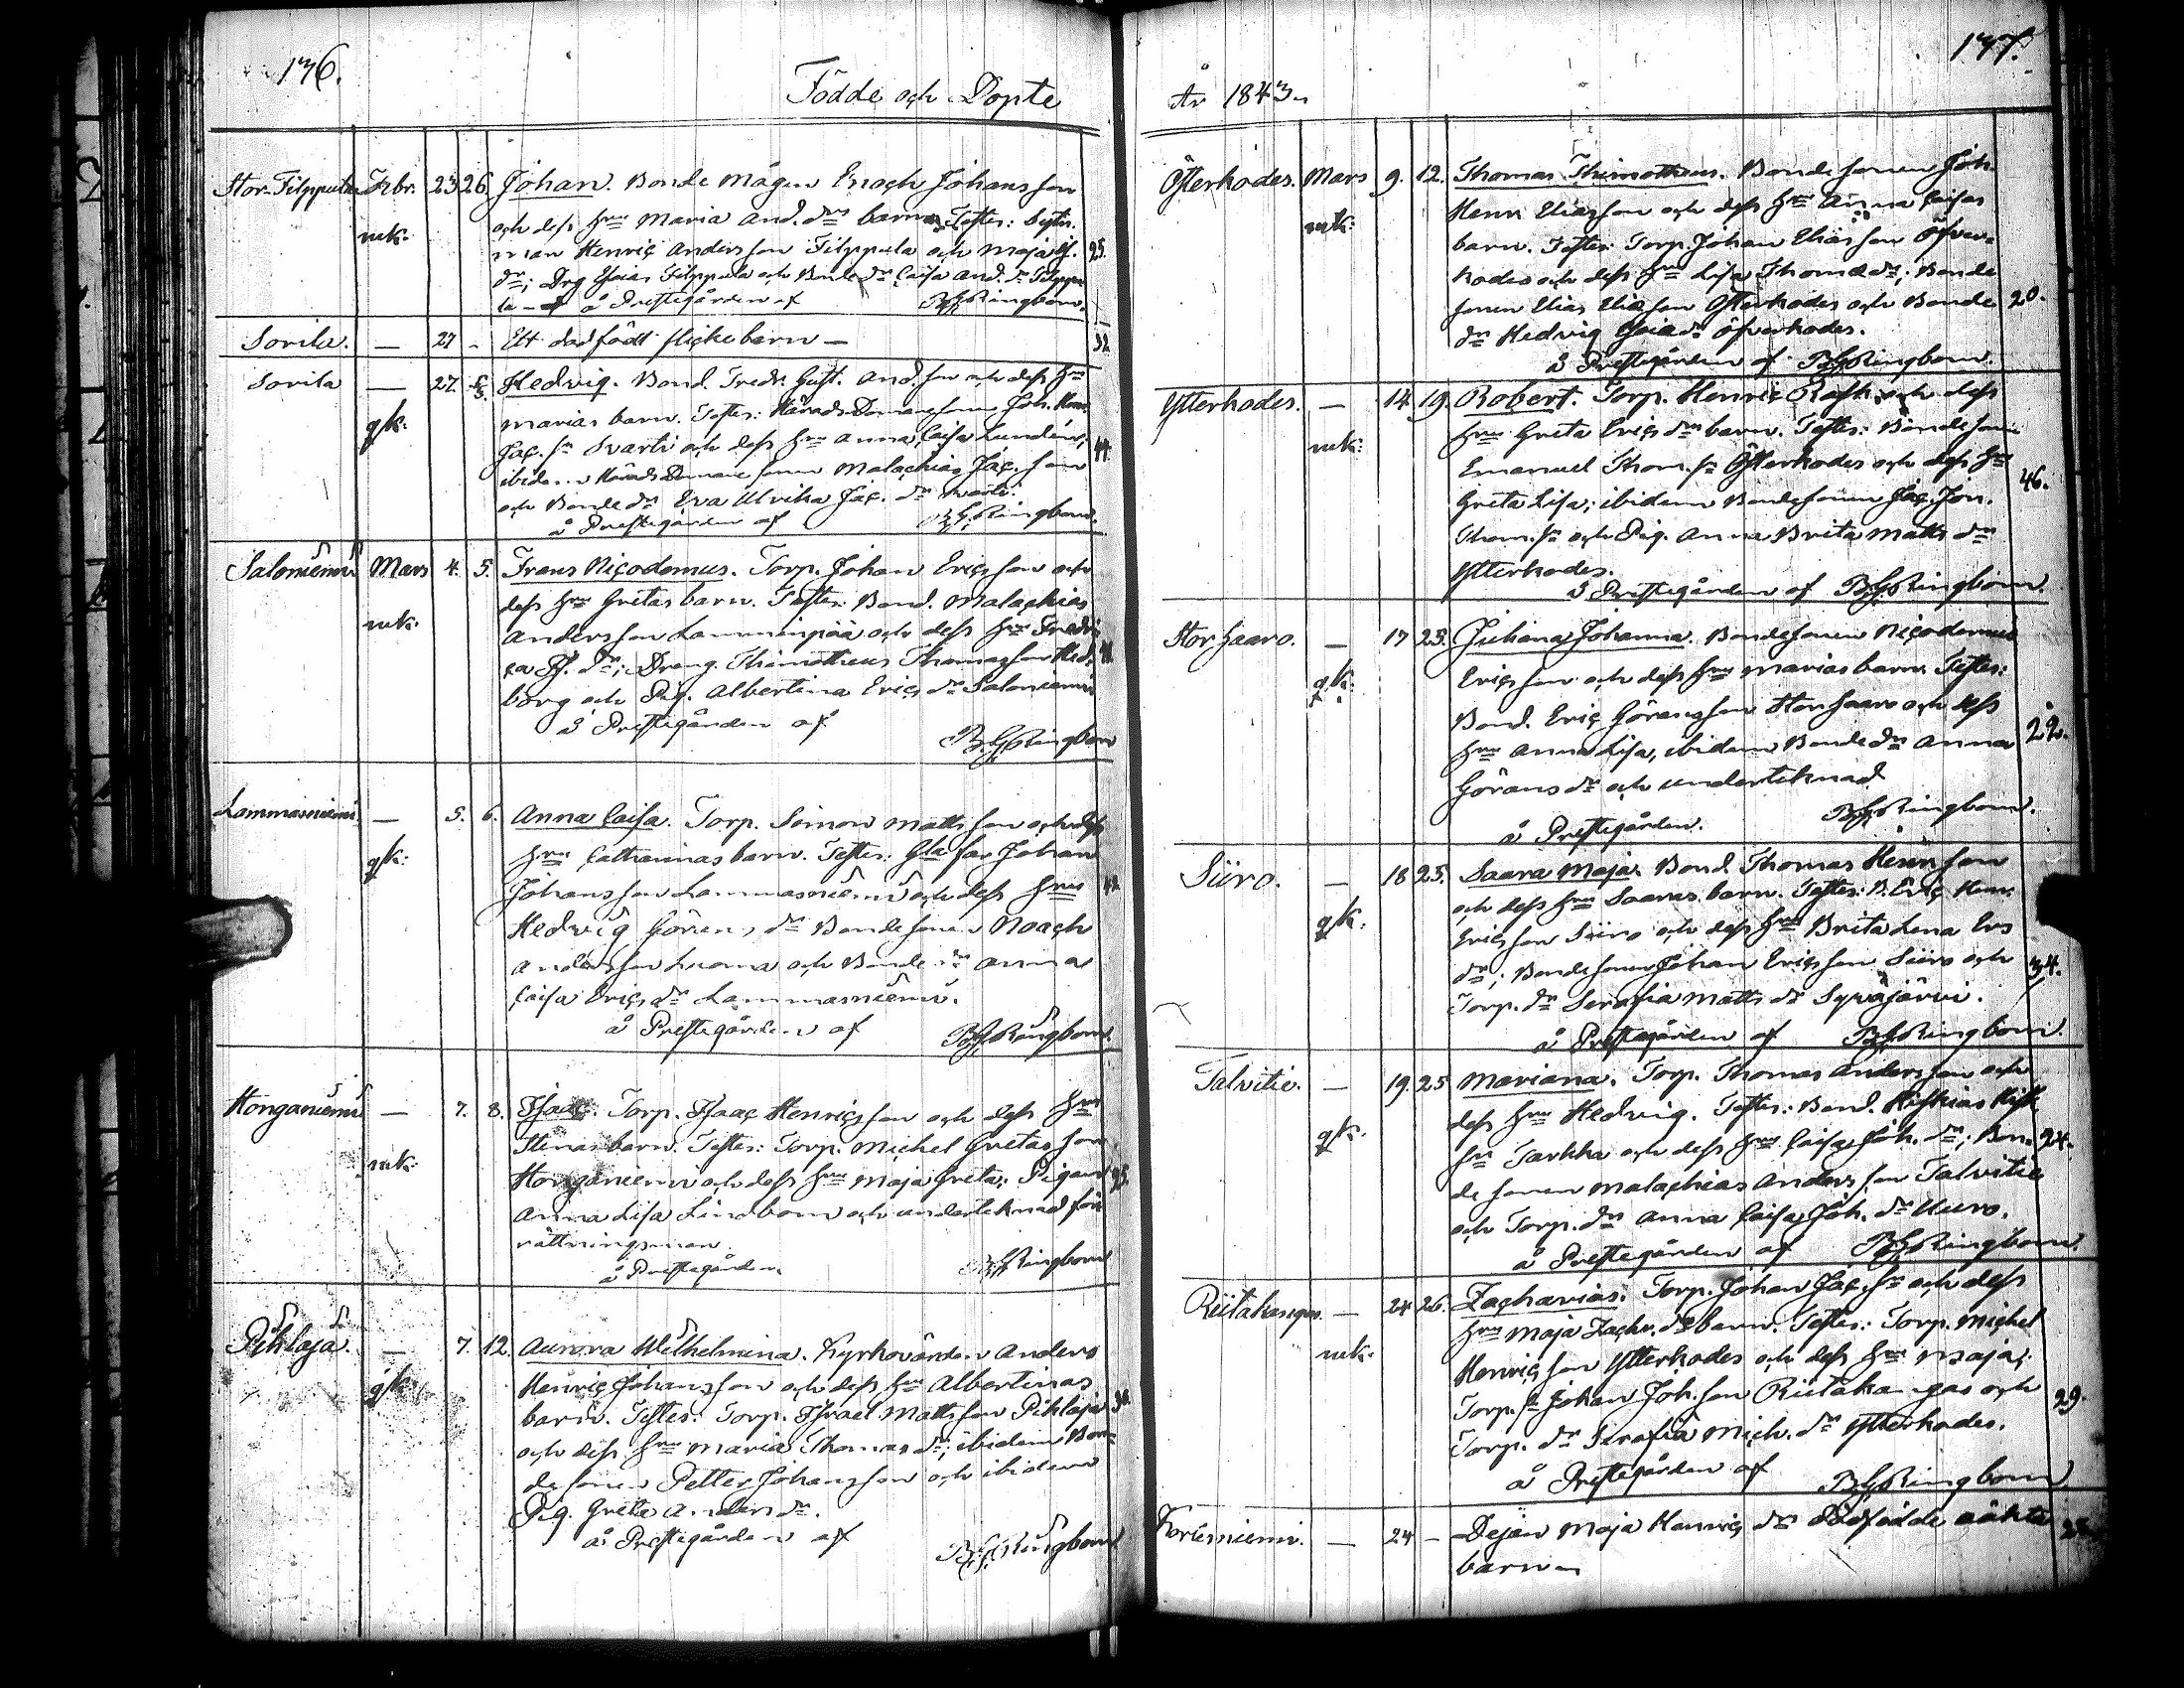 176.
Födde och Döpte
Stor-Filppula Febr. 23 26. Johan. Bonde mågen Enoch Johansson
mk. och dess Hru Maria And. drs barn. Testes: Bytes-
man Henric Andersson Filppula och Maja
dr; Drg Esaias Filppula och Bonde dr Caisa And. dr Filppu 25.
la - å Prestegården af BGRingbom.
Sorila. — 27 - Ett dödfödt flickebarn — 32
Sorila — 27. Hedvig. Bond. Fredr. Gust. And.son och dess Hru
qk: Marias barn. Testes: HäradsDomaresonen Joh. Henr.
Jac. sn Svarti och dess Hru Anna Caisa Lundén, 44.
ibidem HäradsDomare sonen Malachias Jac. son
och Bonde dr Eva Ulrika Jac. dr Svarti.
å Prestegården af BGRingbom.
Saloniemi Mars 4. 5. Frans Nicodemus. Torp. Johan Ericsson och
mk. dess Hru Gretas barn. Testes: Bond. Malachias
Andersson Lamminpää och dess Hru Fredri
ca dr; Dreng. Thimotheus Thomasson Hed-
borg och Pig. Albertina Erics dr Saloniemi
å Prestegården af
BGRingbom
Lammasniemi — 5. 6. Anna Caisa. Torp. Simon Mattsson och dess
qk: Hru Catharinas barn. Testes: Johan
Johansson Lammasniemi och dess Hru 42
Hedvig Görans dr Bondesonen Noach
Andersson Luoma och Bonde dr Anna
Caisa Erics dr Lammasniemi.
å Prestegården af BGRingbom.
Honganiemi — 7. 8. Isaac. Torp. Isaac Henricsson och dess Hru
mk. Stinas barn. Testes: Torp. Michel Gretasson
Honganiemi och dess Hru Maja Greta; Pigan
Anna Lisa Lindbom och undertecknad för
rättningsman.
å Prestegården. BGRingbom
Pihlaja. — 7. 12. Aurora Wilhelmina. Kyrkovärden Anders
qk. Henric Johansson och dess Hru Albertinas
barn. Testes: Torp. Israel Mattsson Pihlaja
och dess Hru Maria Thomas dr; ibidem Bon-
de sonen Petter Johansson och ibidem
Pig. Greta Anders dr.
å Prestegården af
BGRingbom
177.
År 1843.
Österkodes. Mars 9. 12. Thomas Thimotheus. Bondesonen Joh.
mk: Henr Eliasson och dess Hru Anna Caisas
barn. Testes: Torp. Johan Eliasson Öfver-
kodes och dess Hru Lisa Thomæ dr; Bonde
sonen Elias Eliasson Österkodes och Bonde 20.
dr Hedvig Esaiæ dr Öfverkodes.
å Prestegården af BGRingbom.
Ytterkodes. — 14. 19. Robert. Torp. Henric Rask och dess
mk: Hru Greta Erics drs barn. Testes: Bondesonen
Emanuel Thom. sn Österkodes och dess Hru
Greta Lisa; ibidem Bondesonen Jac. Joh. 46.
Thom. sn och Pig. Anna Brita Matts dr
Ytterkodes.
å Prestegården af BGRingbom.
Stor Haaro. — 17 25. Juliana Johanna. Bondesonen Nicodemus
qk: Ericsson och dess Hru Marias barn. Testes:
Bond. Eric Göransson Stor Haaro och dess
Hru Anna Lisa, ibidem Bonde dr Anna 22.
Görans dr och undertecknad
å Prestegården. BGRingbom.
Siiro. — 18 25. Saara Maja. Bond Thomas Henrsson
qk. och dess Hru Saaras barn. Testes: B. Eric Henr.
Ericsson Siiro och dess Hru Brita Lena Ers
dr; Bondesonen Johan Ericsson Siiro och 34.
Torp. dr Serafia Matts dr Syväjärvi.
å Prestegården af BGRingbom.
Talvitie. — 19. 25 Mariana. Torp. Thomas Andersson och
qk. dess Hru Hedvig. Testes: Bond. Hiskias Hisk.
sn Tarkka och dess Hru Caisa Joh. dr; Bon- 24.
de sonen Malachias Andersson Talvitie
och Torp. dr Anna Caisa Joh. dr Uuro.
å Prestegården af BGRingbom.
Riitakangas. — 24 26. Zacharias. Torp. Johan Jac. sn och dess
mk. Hru Maja Zachr. drs barn. Testes: Torp. Michel
Henricsson Ytterkodes och dess Hru Maja;
Torp. sn Johan Joh.son Riitakangas och 29.
Torp. dr Serafia Mich. dr Ytterkodes.
å Prestegården af BGRingbom
Korteniemi. — 24 - Dejan Maja Henrics dr Dödfödde oäkta
barn